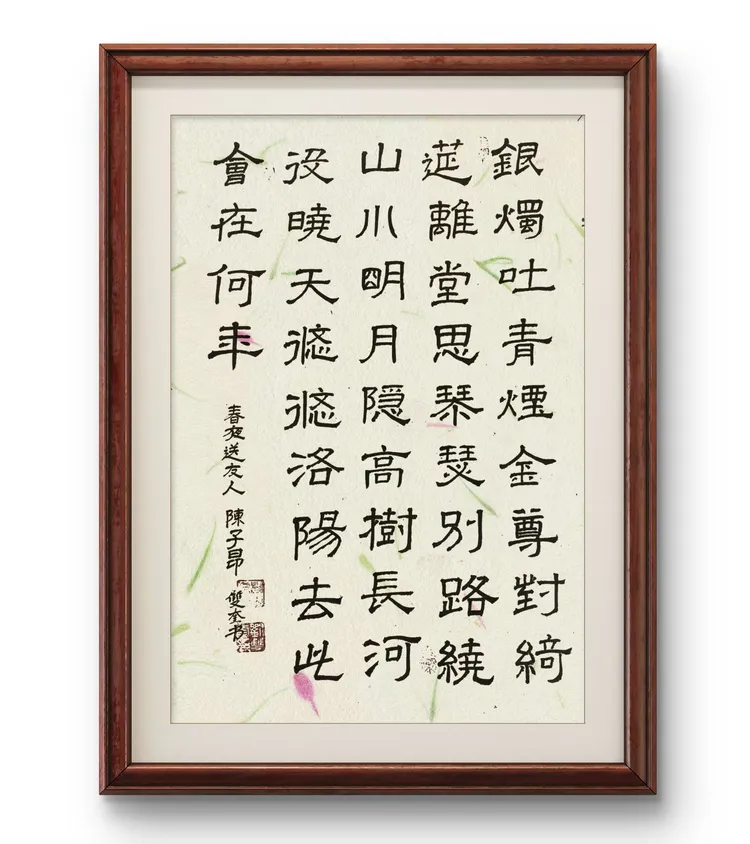 銀燭吐青煙金尊對綺
筵離堂思琴瑟別路繞
山川明月隐高樹長河
没曉天悠悠洛陽去此
會在何年
春夜送友人 陳子昂 雙奎书